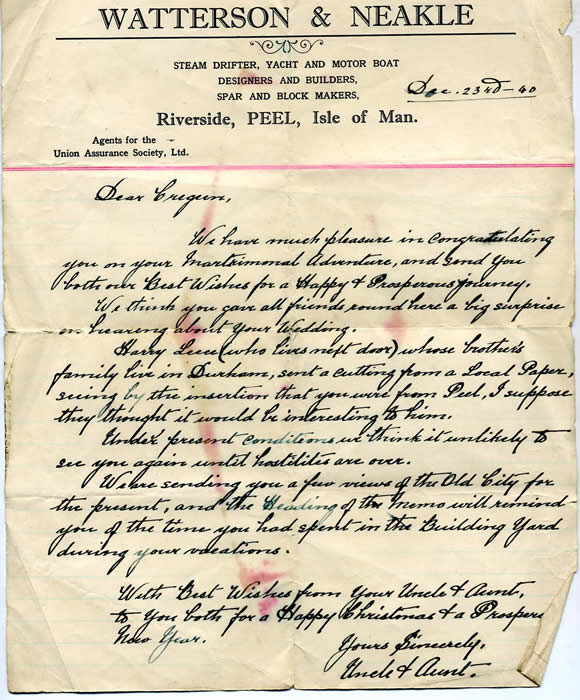 WATTERSON & NEAKLE
STEAM DRIFTER, YACHT AND MOTOR BOAT
DESIGNERS AND BUILDERS,
SPAR AND BLOCK MAKERS,
Dec. 23rd - 40
Riverside, PEEL, Isle of Man.
Agents for the
Union Assurance Society, Ltd.
Dear Creguin,
We have much pleasure in congratulating
you on your Martrimonal Adventure, and send you
both our Best Wishes for a Happy & Prosperous journey.
We think you gave all friends round here a big surprise
on hearing about Your Wedding.
Harry Leece (who lives next door) whose brother's
family live in Durham, sent a cutting from a Local Paper,
seeing by the insertion that you were from Peel, I suppose
they thought it would be interesting to him.
Under present conditions we think it unlikely to
see you again until hostilites are over.
We are sending you a few views of the Old City for
the present, and the Heading of the Memo will remind
you of the time you had spent in the Building Yard
during your vacations.
With Best Wishes from Your Uncle & Aunt,
to You both for a Happy Christmas & a Prospero
New Year.
Yours Sincerely,
Uncle & Aunt.